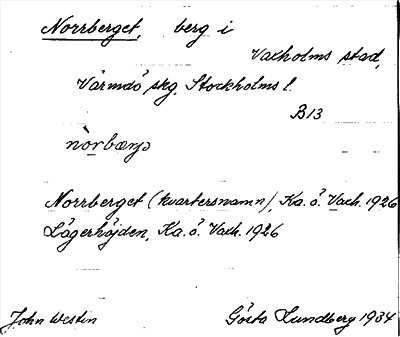 Norrberget, berg i
Vaxholms stad,
Värmdö skg. Stockholms l.
B13
Norrberget (kvartersnamn), Ka. ö. Vaxh. 1926
Lägerhöjden, Ka. ö. Vaxh. 1926
John Westin Gösta Lundberg 1934